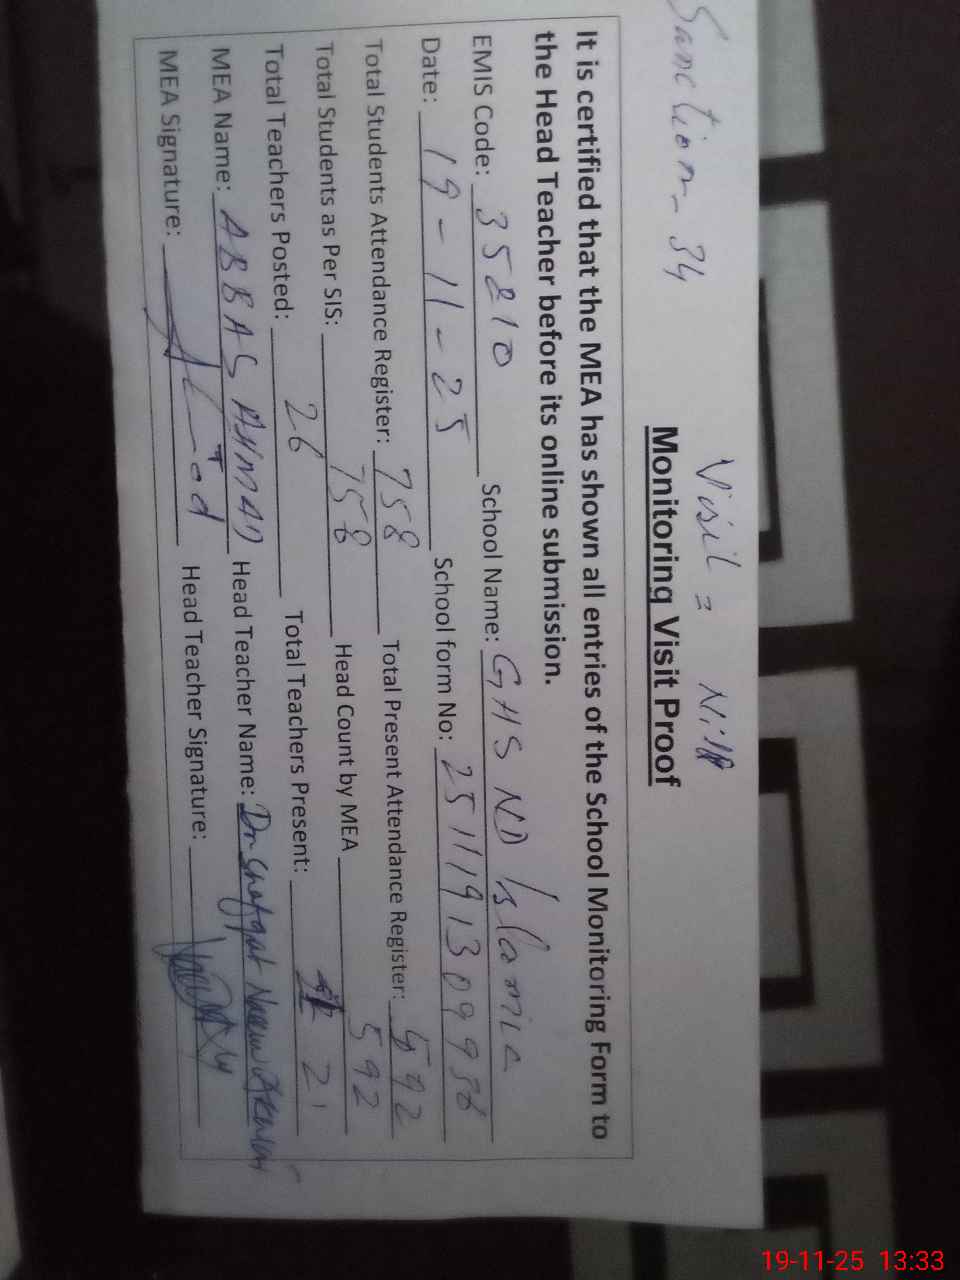 Sanction - 34 Visit = Nill
Monitoring Visit Proof
It is certified that the MEA has shown all entries of the School Monitoring Form to
the Head Teacher before its online submission.
EMIS Code: 35210 School Name: GHS ND Islamia
Date: 19-11-25 School form No: 
Total Students Attendance Register: 758 Total Present Attendance Register: 592
Total Students as Per SIS: 758 Head Count by MEA 592
Total Teachers Posted: 26 Total Teachers Present: 21
MEA Name: ABBAS AHMAD Head Teacher Name: Dr Shafqat Naeem
MEA Signature: Head Teacher Signature:
19-11-25 13:33